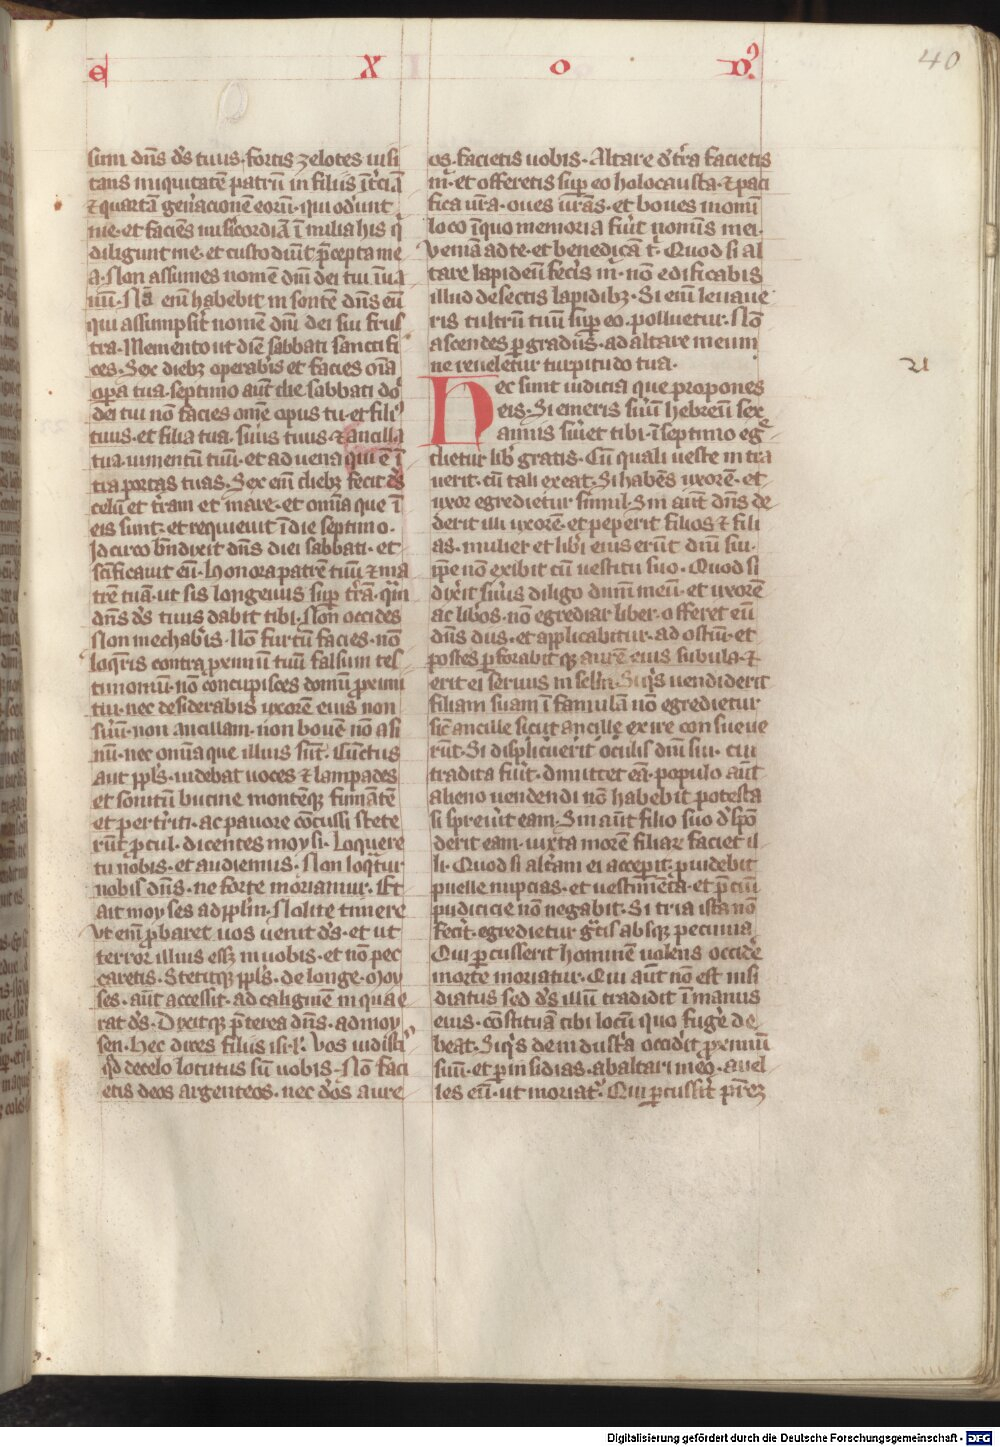 e x o d9
40
sum dn̄s ds̄ tuus·fortis zelotes uisi
tans iniquitatē patrū in filiis ī tciā
⁊ quartā gen̄acionē eorū·qui odunt
me·et faciēs mīsicordiā ī milia his q̄
diligunt me·et custodiūt p̄cepta me
a·Non assumes nomē dn̄i dei tui ī ua
nū·Nā enī habebit in sontē dn̄s eū
qui assumpsit nomē dn̄i dei sui frus
tra·Memento ut diē sabbati sanctifi
ces·Sex diebꝫ operabis et facies oīa
opa tua·septimo aūt die sabbati do
dei tui nō facies omē opus tu·et fili9
tuus·et filia tua·suus tuus·⁊ ancilla
tua·iumentū tuū·et aduena qui ē ī
tra portas tuas·Sex enī diebꝫ fecit ds̄
celū et tram et mare·et omīa que ī
eis sunt·et requieuit ī die septimo·
Idcirco bn̄dixit dn̄s diei sabbati·et
scīficauit eū·Honora patrē tuū ⁊ ma
trē tuā·ut sis longeuus sup trā·quā
dn̄s ds̄ tuus dabit tibi·Non occides
Non mechabis·Nō furtū facies·nō
loqris contra pximū tuū falsum tes
timoniū·nō concupisces domū proximi
tui·nec desiderabis uxorē eius non
suū·non ancillam·non bouē nō asi
nū·nec omīa que illius sūt·Cunctus
aut ppls·uidebat uoces ⁊ lampades
et sonitū bucine montēqꝫ fumātē
et pertriti·ac pauore cōcussi stete
rūt pcul·dicentes moysi·Loquere
tu nobis·et audiemus·Non loqtur
nobis dn̄s·ne forte moriamur·Et
ait moyses ad pplm·Nolite timere
Vt enī pbaret uos uenit ds̄·et ut
terror illius essꝫ in uobis·et nō pec
caretis·Stetitqꝫ ppls·de longe·Moy
ses·aūt accessit·ad caliginē in qua e
rat ds̄·Dixitqꝫ p̄terea dn̄s·ad moy
sen·Hec dices filiis isrl·Vos uidisti
qd de celo locutus sū uobis·Nō faci
etis deos argenteos·nec deos aure
os·facietis uobis·Altare d'tra facietis
m·et offeretis sup eo holocausta·⁊ paci
fica ura·oues uras·et boues in omi
loco ī quo memoria fuit nominis mei·
Veniā ad te·et benedicā t·Quod si al
tare lapideū fecis m·nō edificabis
illud de sectis lapidibꝫ·Si enī leuaue
ris cultrū tuū sup eo·polluetur·Nō
ascendes p gradus·ad altare meum
ne reueletur turpitudo tua·
Hec sunt iudicia que propones
eis·Si emeris suū hebreū sex
annis suiet tibi·ī septimo eg
dietur lib gratis·Cū quali ueste intra
uerit·cū tali exeat·Si habēs uxorē·et
uxor egredietur simul·Sin aūt dn̄s de
derit illi uxorē·et peperit filios ⁊ fili
as·mulier et libi eius erūt dn̄i sui·
ipe nō exibit cū uestitu suo·Quod si
dixit suus diligo dn̄m meū·et uxorē
ac libos·nō egrediar liber·offeret eū
dn̄s dus·et applicabitur·ad ostiū·et
postes pforabitqꝫ aurē eius subula·⁊
erit ei seruus in sclm·Siqs uendiderit
filiam suam ī famulā nō egredietur
sic ancille sicut ancille exire consueue
rūt·Si displicuerit oculis dn̄i sui·cui
tradita fuit·dimittet eā·populo aūt
alieno uendendi nō habebit potesta
si spreuit eam·Sin aūt filio suo d'spō
derit eam·iuxta morē filiare faciet il
li·Quod si altam ei accepit·puidebit
puelle nupcias·et uestimēta·et pciū
pudicicie nō negabit·Si tria ista nō
fecit·egredietur gtis absqꝫ pecunia
Qui pcusserit hominē uolens occide
morte moriatur·Qui aūt nō est insi
diatus sed ds̄ illū tradidit ī manus
eius·cōstituā tibi locū quo fuge de
beat·Siqs de industa occidit pximū
suū·et p insidias·ab altari meo·auel
les eū·ut moriat·Qui pcussit prēꝫ
Digitalisierung gefördert durch die Deutsche Forschungsgemeinschaft - DFG